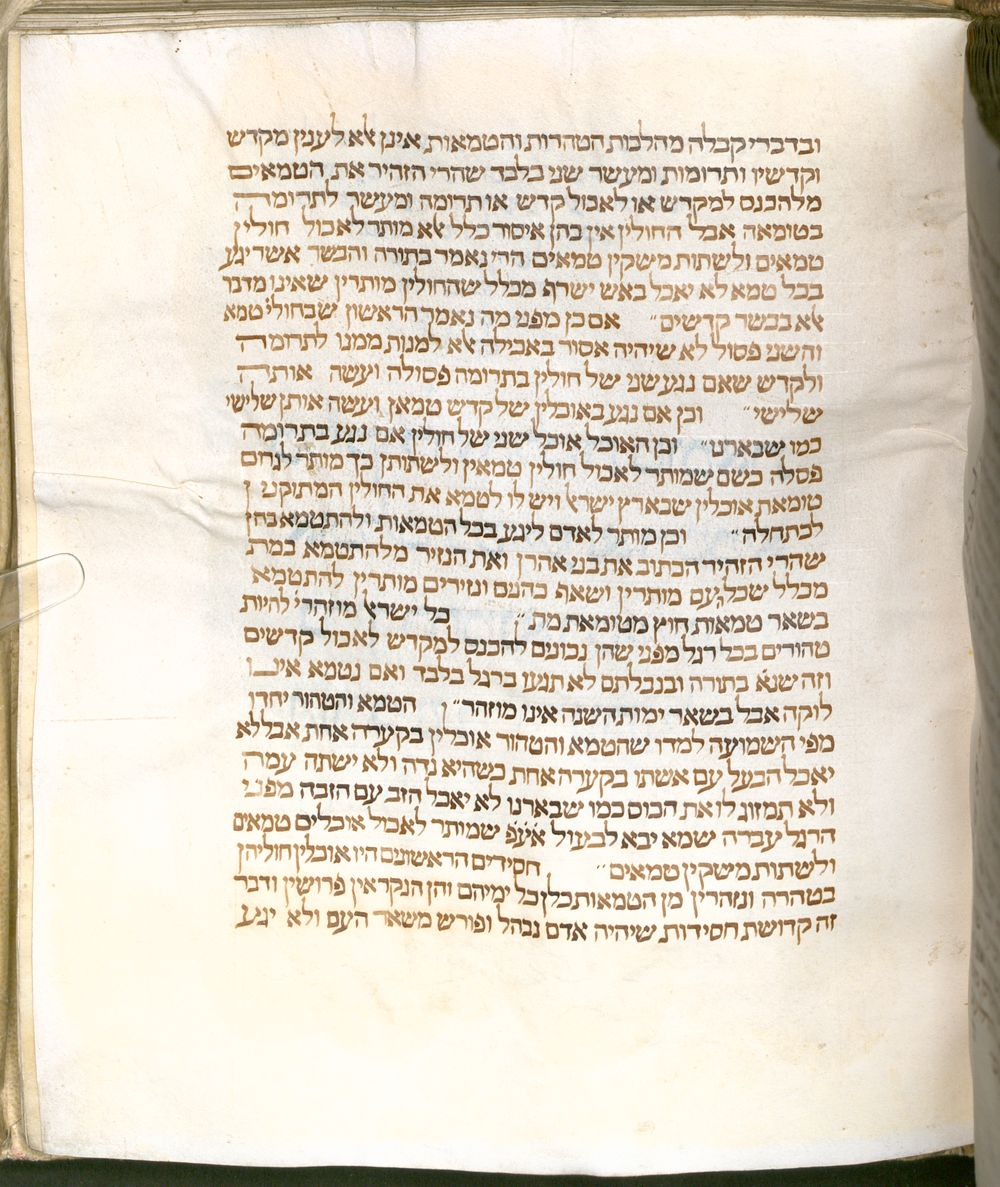 ובדברי קבלה מהלכות הטהרות והטמאות אינן אלא לענין מקדש
וקדשיו ותרומות ומעשר שני בלבד שהרי הזהיר את הטמאים
מלהכנס למקדש או לאכול קדש או תרומה ומעשר לתרומה
בטומאה אבל החולין אין בהן איסור כלל אלא מותר לאכול חולין
טמאים ולשתות משקין טמאים הרי נאמר בתורה והבשר אשר יגע
בכל טמא לא יאכל באש ישרף מכלל שהחולין מותרין שאינו מדבר
אלא בבשר קדשים״ אם כן מפני מה נאמר הראשון שבחולי׳ טמא
והשני פסול לא שיהיה אסור באכילה אלא למנות ממנו לתרומה
ולקדש שאם נגע שני של חולין בתרומה פסולה ועשה אותה
שלישי״ וכן אם נגע באוכלין של קדש טמאן ועשה אותן שלישי
כמו שבארנו״ וכן האוכל אוכל שני של חולין אם נגע בתרומה
פסלה כשם שמותר לאכול חולין טמאין ולשתותן כך מותר לגרום
טומאת אוכלין שבארץ ישראל ויש לו לטמא את החולין המתוקנין
לכתחלה״ וכן מותר לאדם ליגע בכל הטמאות ולהתטמא בהן
שהרי הזהיר הכתוב את בני אהרן ואת הנזיר מלהתטמא במת
מכלל שכל העם מותרין ושאף כהנים ונזירים מותרין להתטמא
בשאר טמאות חוץ מטומאת מת״ כל ישראל מוזהרי׳ להיות
טהורים בכל רגל מפני שהן נכונים להכנס למקדש לאכול קדשים
וזה שנא׳ בתורה ובנבלתם לא תגעו ברגל בלבד ואם נטמא אינו
לוקה אבל בשאר ימות השנה אינו מוזהר״ הטמא והטהור יחדו
מפי השמועה למדו שהטמא והטהור אוכלין בקערה אחת אבל לא
יאכל הבעל עם אשתו בקערה אחת כשהיא נדה ולא ישתה עמה
ולא תמזוג לו את הכוס כמו שבארנו לא יאכל הזב עם הזבה מפני
הרגל עברה שמא יבא לבעול אע״פ שמותר לאכול אוכלים טמאים
ולשתות משקין טמאים״ חסידים הראשונים היו אוכלין חוליהן
בטהרה ונזהרין מן הטמאות כלן כל ימיהם והן הנקראין פרושין ודבר
זה קדושת חסידות שיהיה אדם נבהל ופורש משאר העם ולא יגע